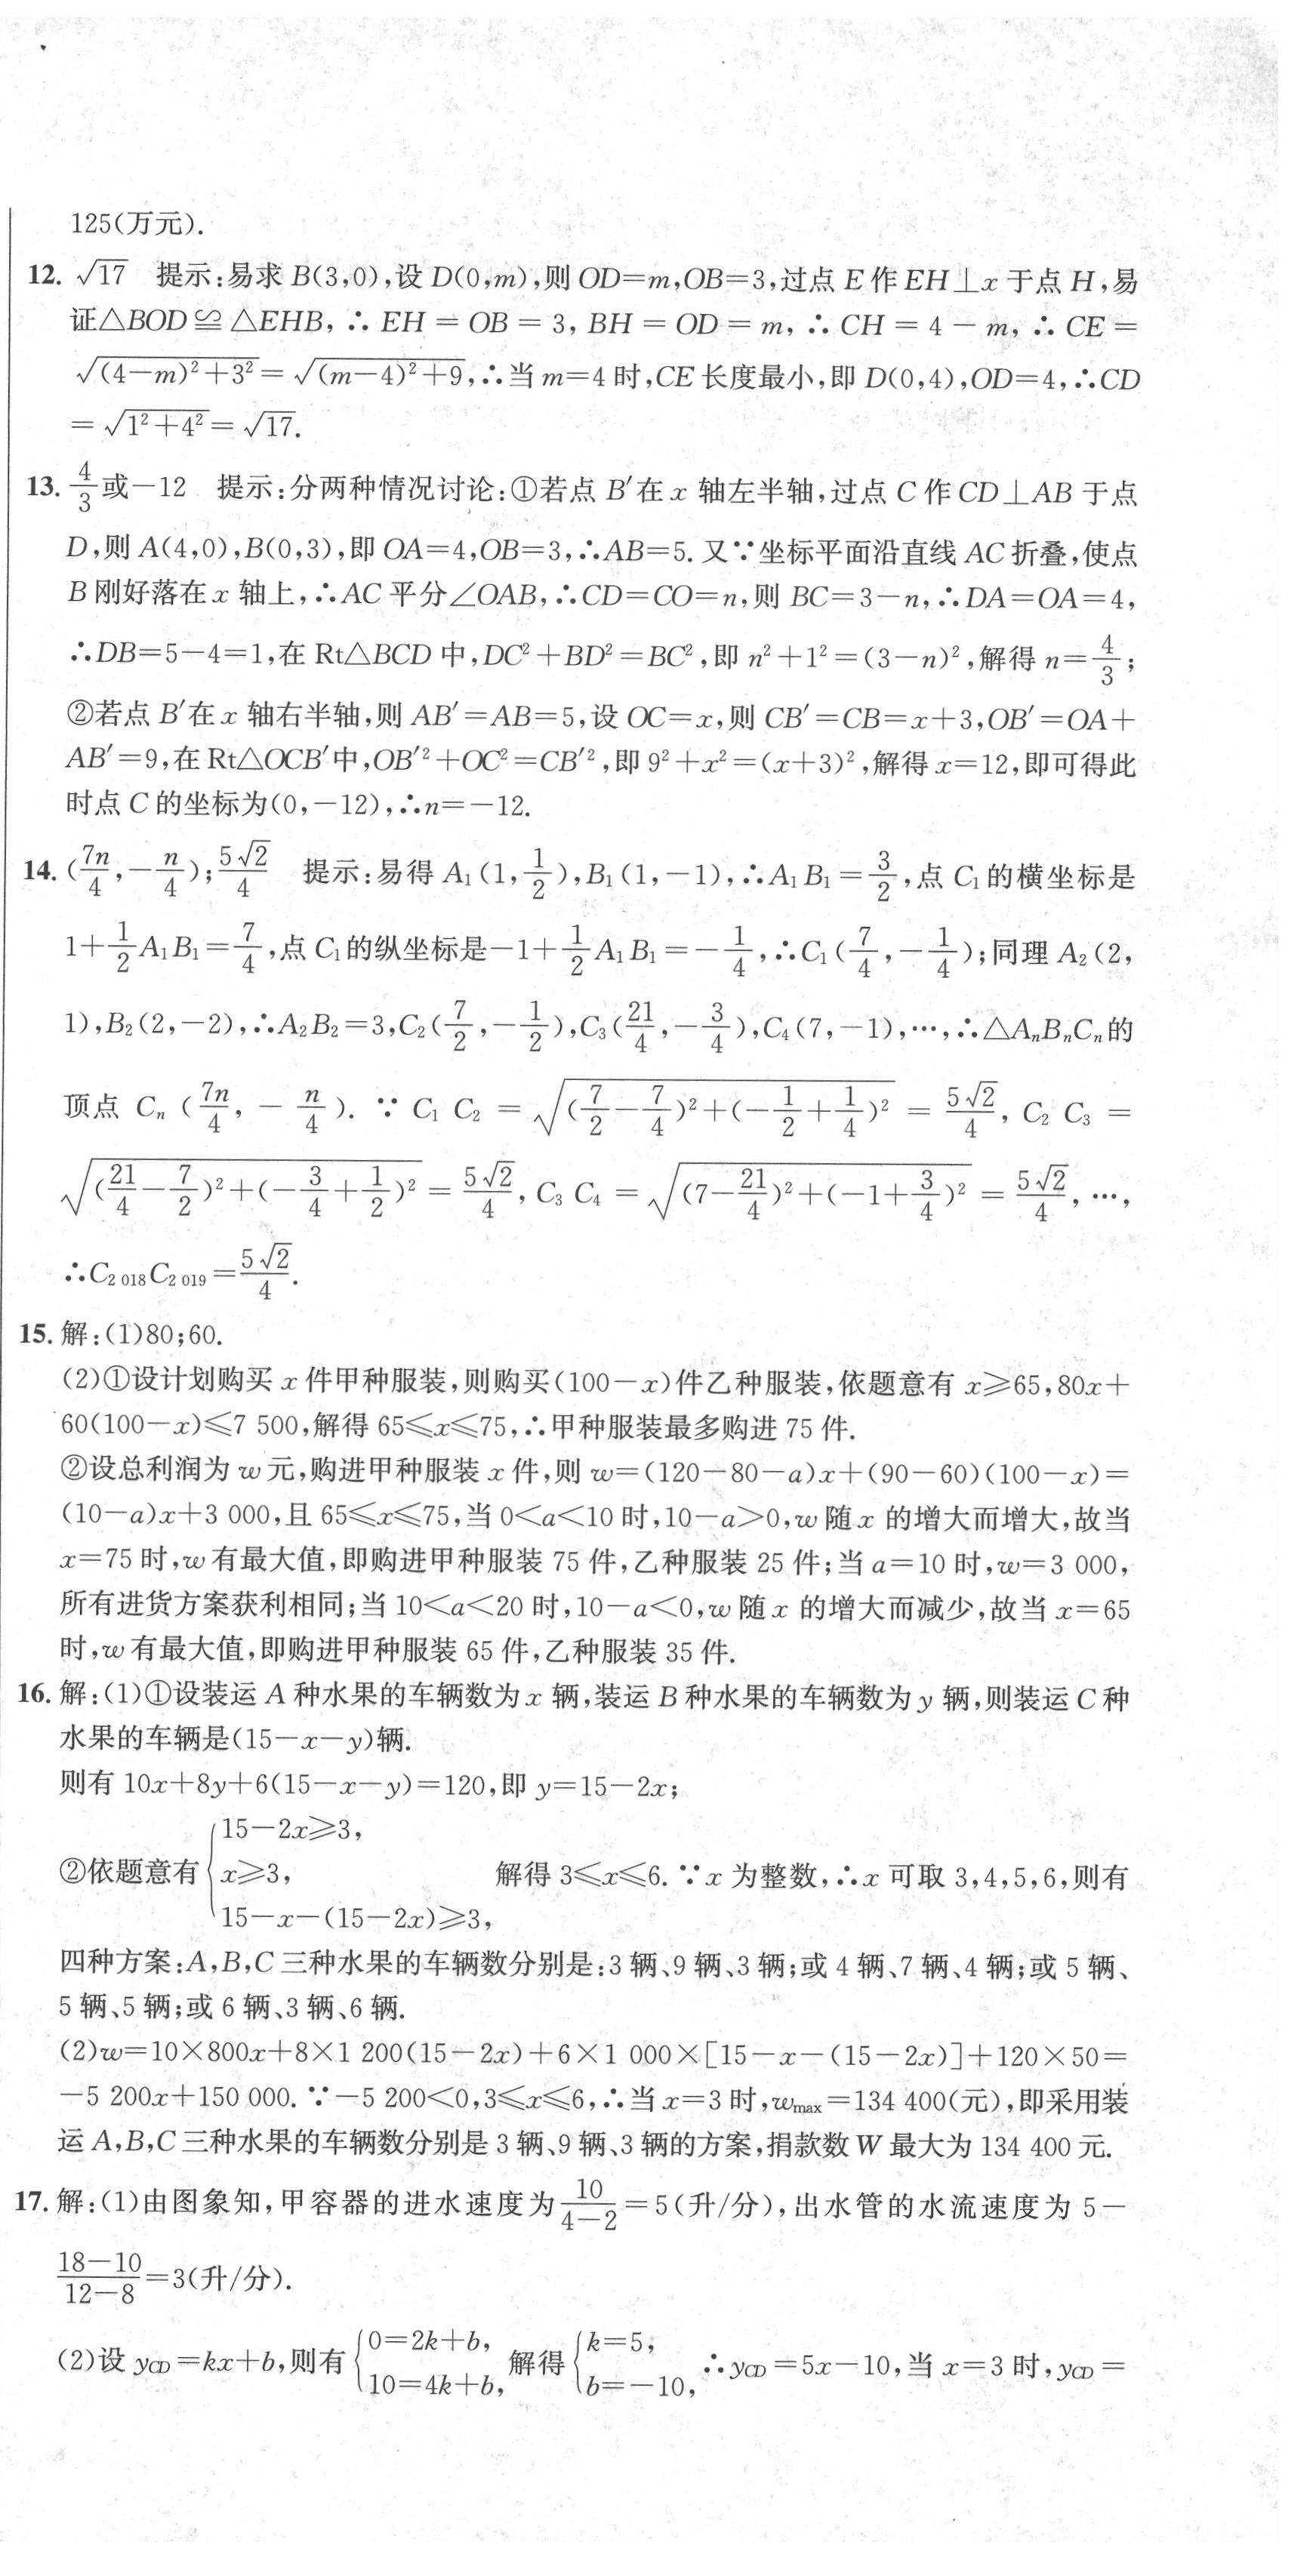 125(万元).
12. √17 提示:易求 B(3,0),设 D(0,m),则 OD=m,OB=3,过点 E 作 EH⊥x 于点 H,易
证△BOD≌△EHB, ∴ EH = OB = 3, BH = OD = m, ∴ CH = 4 − m, ∴ CE =
√((4−m)²+3²)=√((m−4)²+9),∴当 m=4 时,CE 长度最小,即 D(0,4),OD=4,∴CD
=√(1²+4²)=√17.
13. 4/3或−12 提示:分两种情况讨论:①若点 B′在 x 轴左半轴,过点 C 作 CD⊥AB 于点
D,则 A(4,0),B(0,3),即 OA=4,OB=3,∴AB=5. 又∵坐标平面沿直线 AC 折叠,使点
B 刚好落在 x 轴上,∴AC 平分∠OAB,∴CD=CO=n,则 BC=3−n,∴DA=OA=4,
∴DB=5−4=1,在 Rt△BCD 中,DC²+BD²=BC²,即 n²+1²=(3−n)²,解得 n=4/3;
②若点 B′在 x 轴右半轴,则 AB′=AB=5,设 OC=x,则 CB′=CB=x+3,OB′=OA+
AB′=9,在 Rt△OCB′中,OB′²+OC²=CB′²,即 9²+x²=(x+3)²,解得 x=12,即可得此
时点 C 的坐标为(0,−12),∴n=−12.
14. (7n/4,−n/4);5√2/4 提示:易得 A₁(1,1/2),B₁(1,−1),∴A₁B₁=3/2,点 C₁的横坐标是
1+1/2A₁B₁=7/4,点 C₁的纵坐标是−1+1/2A₁B₁=−1/4,∴C₁(7/4,−1/4);同理 A₂(2,
1),B₂(2,−2),∴A₂B₂=3,C₂(7/2,−1/2),C₃(21/4,−3/4),C₄(7,−1),…,∴△AₙBₙCₙ的
顶点 Cₙ (7n/4, −n/4). ∵ C₁ C₂ = √((7/2−7/4)²+(−1/2+1/4)²) = 5√2/4, C₂ C₃ =
√((21/4−7/2)²+(−3/4+1/2)²) = 5√2/4, C₃ C₄ = √((7−21/4)²+(−1+3/4)²) = 5√2/4, …,
∴C₂ ₀₁₈C₂ ₀₁₉=5√2/4.
15. 解:(1)80;60.
(2)①设计划购买 x 件甲种服装,则购买(100−x)件乙种服装,依题意有 x≥65,80x+
60(100−x)≤7 500,解得 65≤x≤75,∴甲种服装最多购进 75 件.
②设总利润为 w 元,购进甲种服装 x 件,则 w=(120−80−a)x+(90−60)(100−x)=
(10−a)x+3 000,且 65≤x≤75,当 0<a<10 时,10−a>0,w 随 x 的增大而增大,故当
x=75 时,w 有最大值,即购进甲种服装 75 件,乙种服装 25 件;当 a=10 时,w=3 000,
所有进货方案获利相同;当 10<a<20 时,10−a<0,w 随 x 的增大而减少,故当 x=65
时,w 有最大值,即购进甲种服装 65 件,乙种服装 35 件.
16. 解:(1)①设装运 A 种水果的车辆数为 x 辆,装运 B 种水果的车辆数为 y 辆,则装运 C 种
水果的车辆是(15−x−y)辆.
则有 10x+8y+6(15−x−y)=120,即 y=15−2x;
15−2x≥3,
②依题意有{x≥3, 解得 3≤x≤6. ∵x 为整数,∴x 可取 3,4,5,6,则有
15−x−(15−2x)≥3,
四种方案:A,B,C 三种水果的车辆数分别是:3 辆、9 辆、3 辆;或 4 辆、7 辆、4 辆;或 5 辆、
5 辆、5 辆;或 6 辆、3 辆、6 辆.
(2)w=10×800x+8×1 200(15−2x)+6×1 000×[15−x−(15−2x)]+120×50=
−5 200x+150 000. ∵−5 200<0,3≤x≤6,∴当 x=3 时,wmax=134 400(元),即采用装
运 A,B,C 三种水果的车辆数分别是 3 辆、9 辆、3 辆的方案,捐款数 W 最大为 134 400 元.
17. 解:(1)由图象知,甲容器的进水速度为10/(4−2)=5(升/分),出水管的水流速度为 5−
(18−10)/(12−8)=3(升/分).
(2)设 yCD=kx+b,则有{0=2k+b, 10=4k+b, 解得{k=5, b=−10, ∴yCD=5x−10,当 x=3 时,yCD=